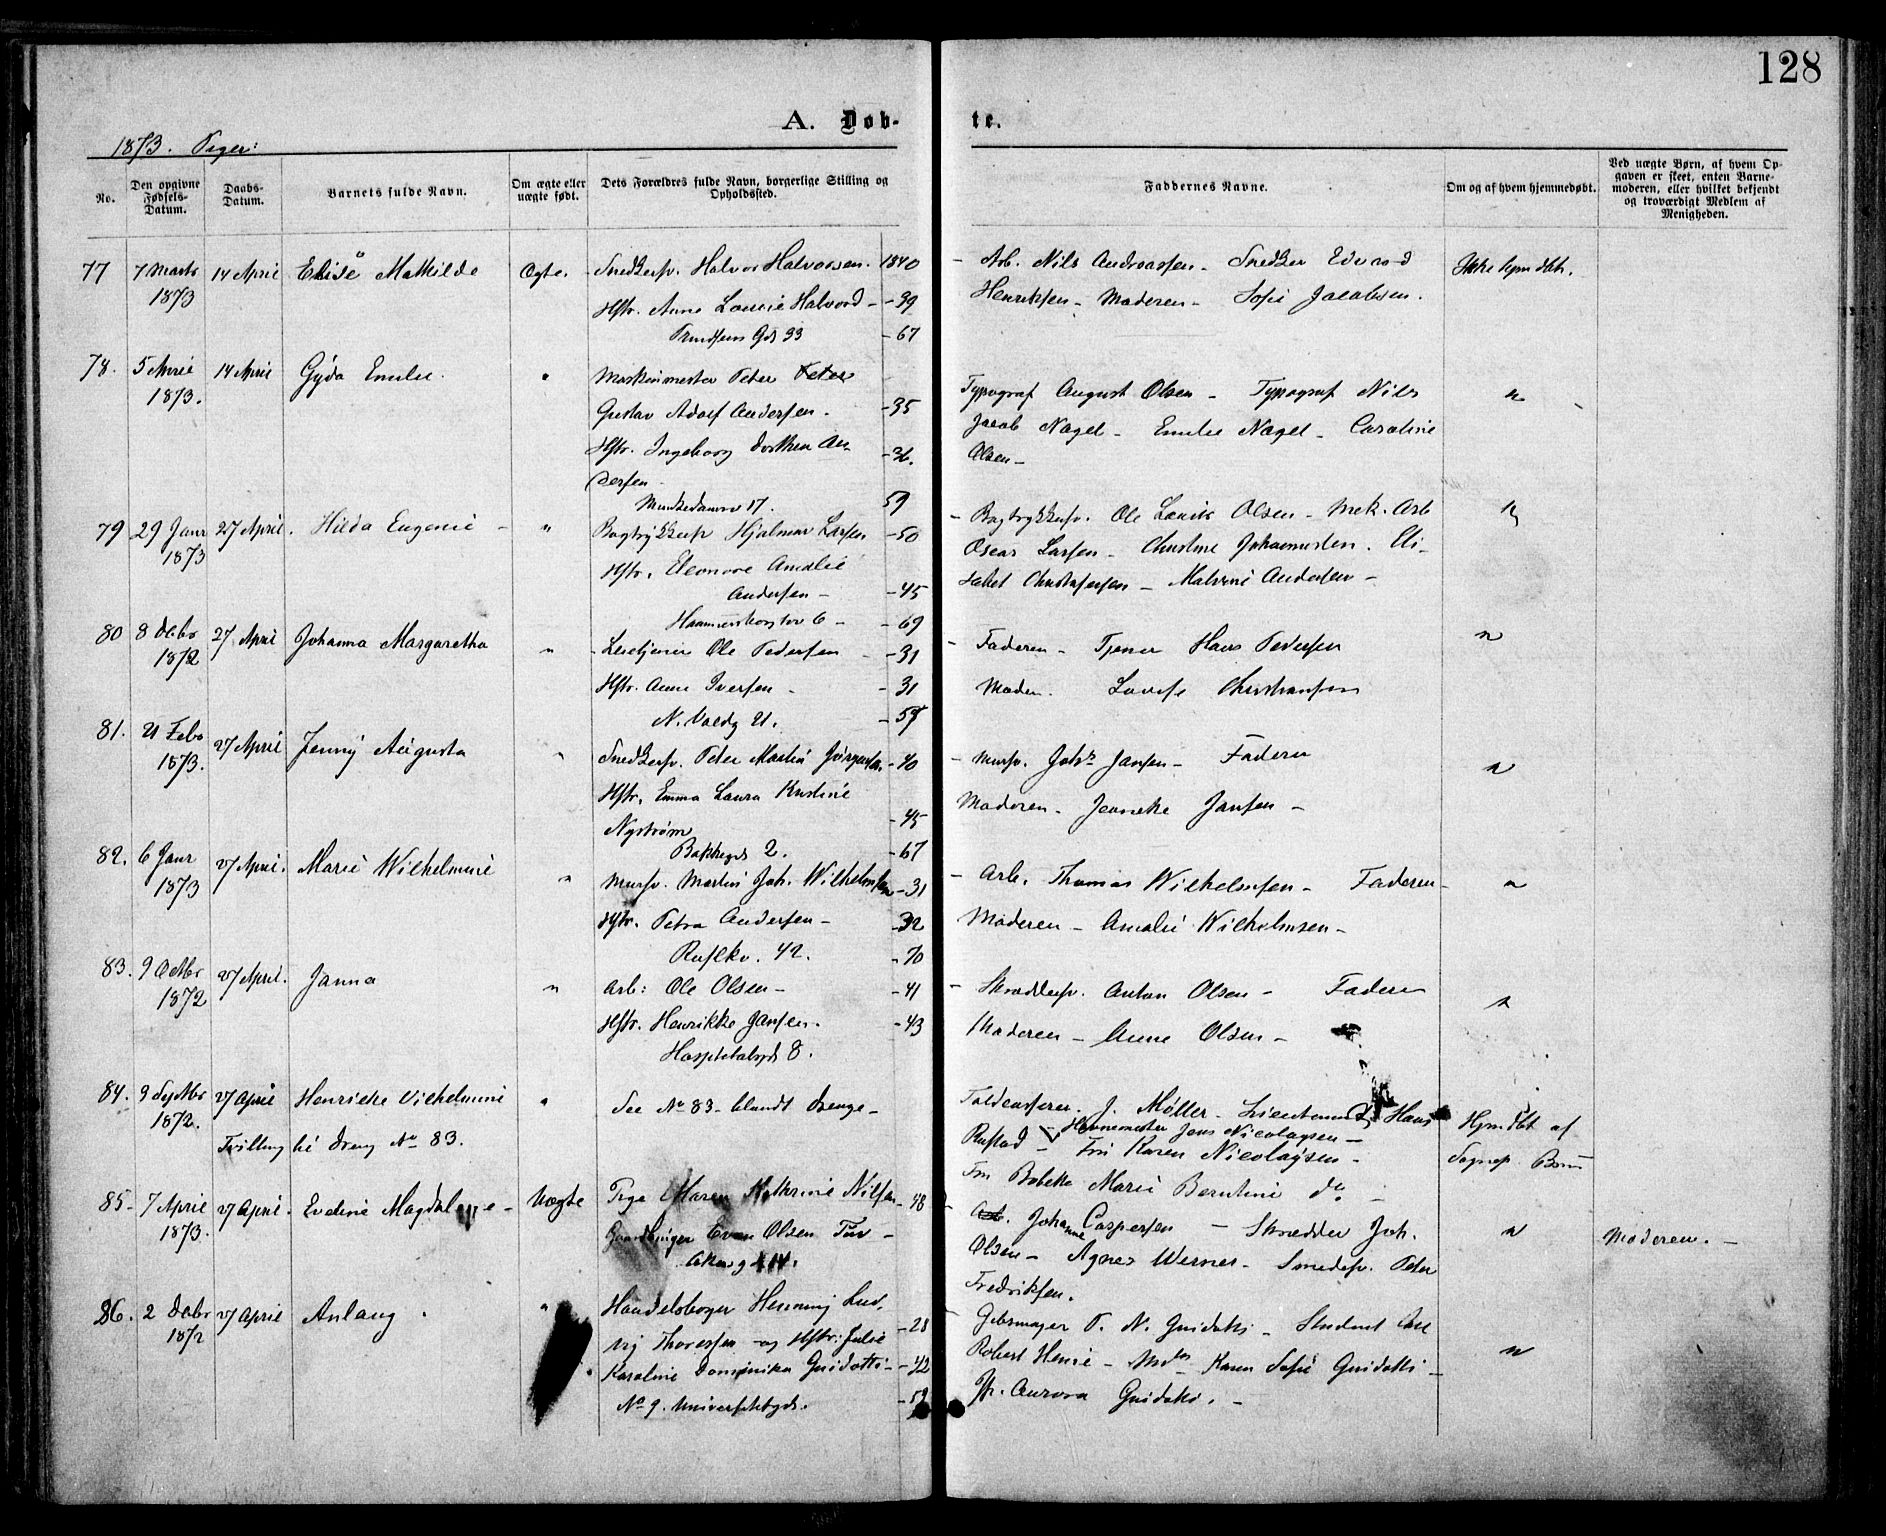 128
A. Døb-
te.
1873. Piger:
No.
Den opgivne Fødsels-Datum.
Daabs-Datum.
Barnets fulde Navn.
Om ægte eller uægte født.
Dets Forældres fulde Navn, borgerlige Stilling og Opholdssted.
Faddernes Navne.
Om og af hvem hjemmedøbt.
Ved uægte Børn, af hvem Op-
gaven er skeet, enten Barne-
moderen, eller hvilket bekjendt
og troværdigt Medlem af
Menigheden.
77 7 Marts 14 April Elise Mathilde Ægte. Snedkersv. Halvor Halvorsen. 1840 - Arb. Nils Andreassen - Snedker Edvard Ikke hjmdbt.
1873 Hstr. Anne Lovise Halvord - -39 Henriksen - Moderen - Sofie Jacobsen.
Gd 33 -67
78. 5 April 14 April Gyda Emilie " Maskinmester Peter Peter Typograf August Olsen - Typograf Nils "
1873. Gustav Adolf Andersen. -35 Jacob Nagel - Emilie Nagel - Caroline
Hstr. Ingeborg Dorthea An- -36. Olsen -
dersen
Munkedamsv 17. 59
79 29 Janr 27 April. Hilda Eugenie - " Bogtrykkersv Hjalmar Larsen -50 - Bogtrykkersv. Ole Olsen - Mek. Arb "
1873 Hstr. Eleonore Amalie Oscar Larsen - Christine Johannesen. Eli-
Andersen - -45 sabet Christofersen - Andersen -
Hammersborgtorv 6 - -69
80 8 Decbr 27 April Johanna Margaretha " Ole Pedersen -31 - Faderen - Tjener Hans Pedersen "
1872 Hstr. Anne Iversen - -31 Moderen. Lovise Christiansen
N. Voldg 21. -59
81. 21 Febr 27 April Jenny Augusta " Snedkersv. Peter Martin Jørgensen -40 - Mursv. Johs Jansen - Faderen "
1873. Hstr. Emma Laura Kristine Moderen - Jansen -
Nystrøm -45
Bakkegd 2. -67
82. 6 Janr 27 April. Marie Wilhelmine " Mursv. Martin Joh. Wilhelmsen -31 - Arb. Thomas Wilhelmsen - Faderen - "
1873 Hstr. Petra Andersen - -32 Moderen - Amalie Wilhelmsen -
Rusløkv. 42. -70
83. 9 Octbr 27 April. Janna " Arb: Ole Olsen - -41 - Skræddersv. Anton Olsen - Faderen "
1872 Hstr. Henrikke Jansen. -43 Moderen - Anne Olsen -
Hospitalsgd 8.
84. 9 Septbr 27 April Henrikke Vilhelmine " See No 83 - blandt Drenge - Toldcasserer. J. Møller - Lieutenant Hans Hjmdbt af
1872. Havnemester Jens Nicolaysen -
Rustad - Fru Karen Nicolaysen - Sognep. Brun
Tvilling til Dreng No 83. Fru Marie Berntine do -
85 - 7 April 27 April. Eveline Magdalene - Uægte Pige Maren Kathrine Nilsen -48 Arb. Johanne Caspersen - Skrædder Joh. " Moderen. -
1873. Gaardbruger Even Olsen - Olsen - Agnes Werner - Smedesv. Peter
Akersgd 14. Fredriksen.
86. 2 Decbr 27 April Anlaug. " Handelsborger Henning Lud- -28 Gibsmager P. N. Guidotti - Student Carl "
1872 vig Thoresen - og Hstr: Julie Robert - Karen Sofie Guidotti -
Karoline Dominika Guidotti - -42 Fr. Aurora Guidotti. -
No 9. Universitetsgd. -59